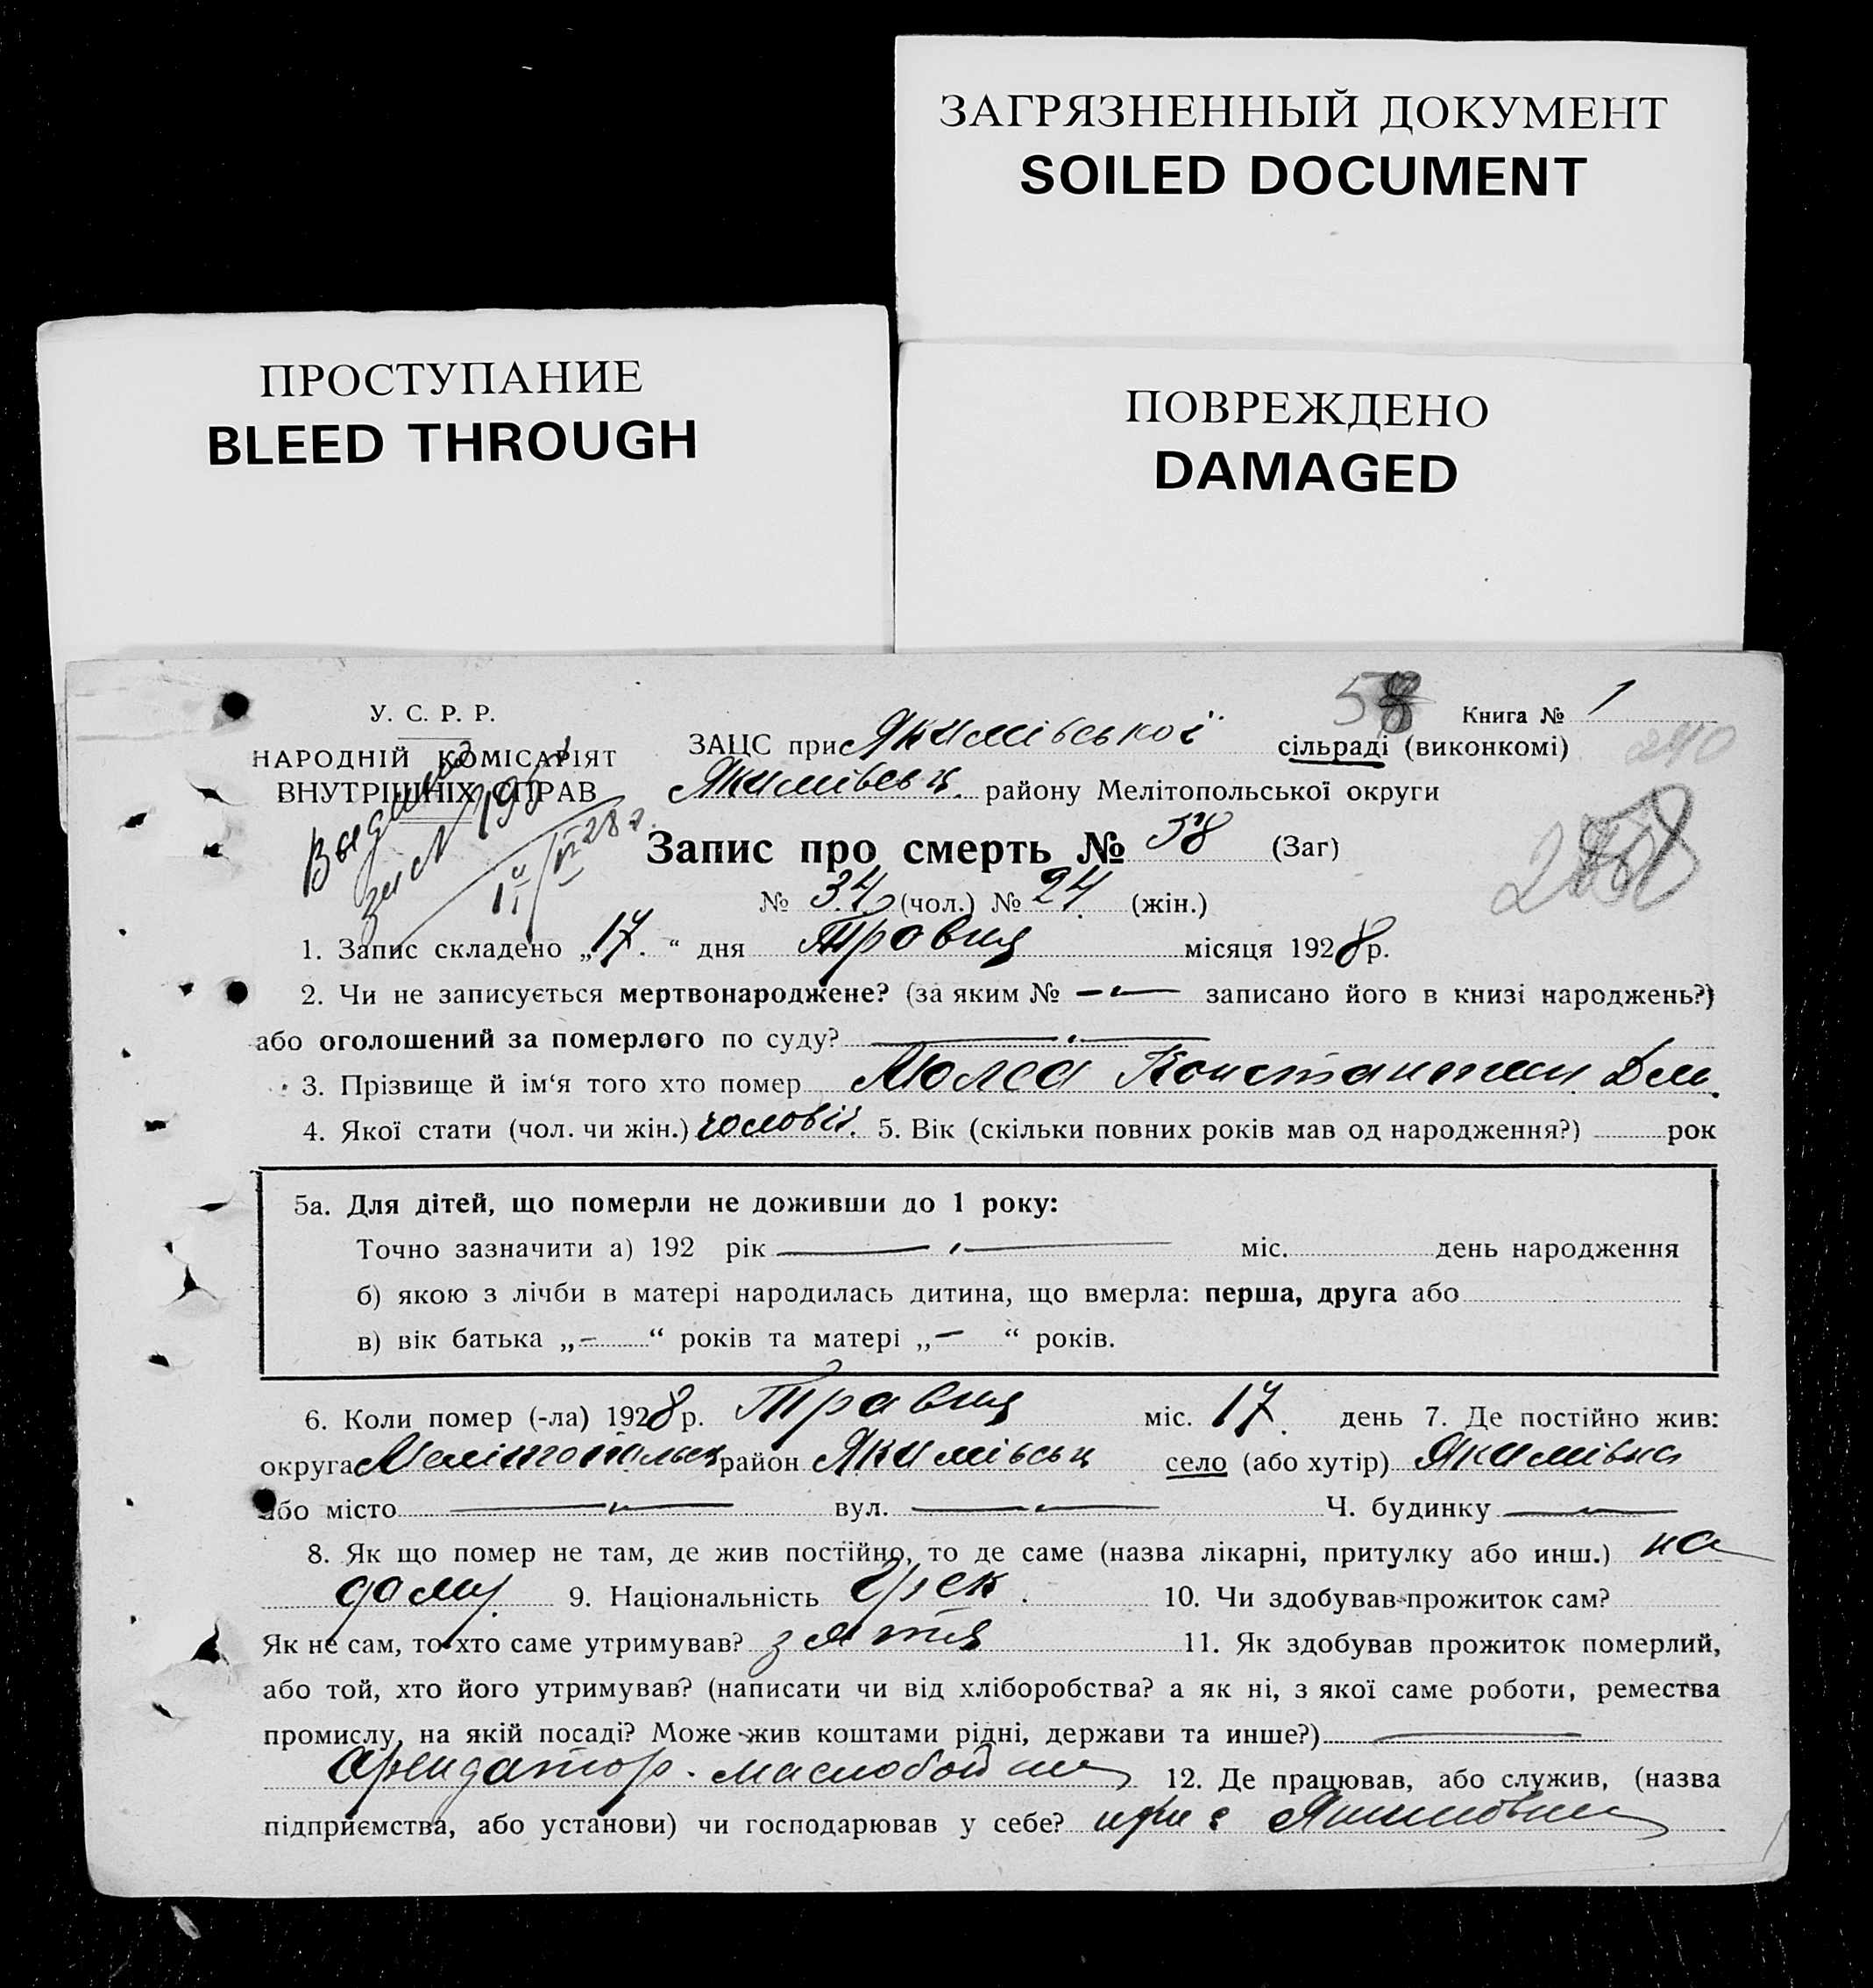 ЗАГРЯЗНЕННЫЙ ДОКУМЕНТ
SOILED DOCUMENT
ПРОСТУПАНИЕ
BLEED THROUGH
ПОВРЕЖДЕНО
DAMAGED
58
Книга № 1
У. С. Р. Р.
НАРОДНІЙ КОМІСАРІЯТ
ВНУТРІШНІХ СПРАВ
ЗАЦС при Якимівської сільраді (виконкомі)
240
Якимівськ. району Мелітопольської округи
Запис про смерть № 58 (Заг)
№ 34 (чол.) № 24 (жін.)
1. Запис складено „17.“ дня Травня місяця 1928 р.
2. Чи не записується мертвонароджене? (за яким № — записано його в книзі народжень?)
або оголошений за померлого по суду? —
3. Прізвище й ім‘я того хто помер Константин
4. Якої стати (чол. чи жін.) чоловіч. 5. Вік (скільки повних років мав од народження?) рок
5а. Для дітей, що померли не доживши до 1 року:
Точно зазначити а) 192 рік — міс. день народження
б) якою з лічби в матері народилась дитина, що вмерла: перша, друга або
в) вік батька „–“ років та матері „–“ років.
6. Коли помер (-ла) 1928 р. Травня міс. 17. день 7. Де постійно жив:
округа Мелітопольськ район Якимівськ село (або хутір) Якимівка
або місто — вул. — Ч. будинку —
8. Як що помер не там, де жив постійно, то де саме (назва лікарні, притулку або инш.) на
дому. 9. Національність Грек. 10. Чи здобував прожиток сам?
Як не сам, то хто саме утримував? зятя 11. Як здобував прожиток померлий,
або той, хто його утримував? (написати чи від хліборобства? а як ні, з якої саме роботи, ремества
промислу, на якій посаді? Може жив коштами рідні, держави та инше?) —
Арендатор. маслобойни 12. Де працював, або служив, (назва
підприємства, або установи) чи господарював у себе? при с Якимовки